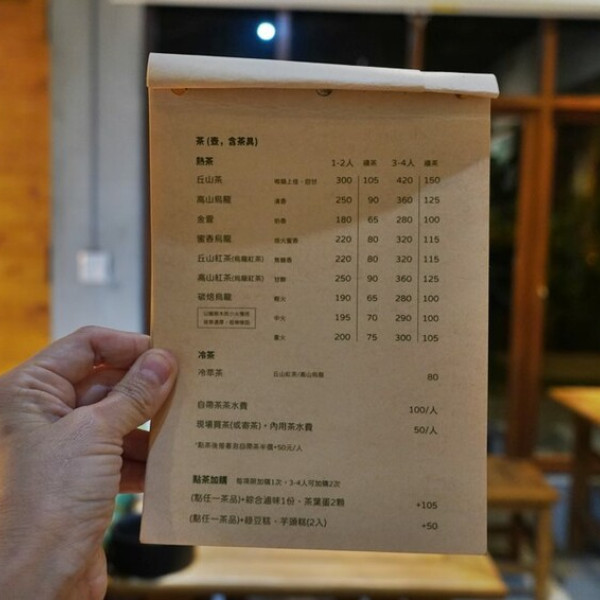 茶(壺，含茶具)
熱茶 1-2人 續茶 3-4人 續茶
丘山茶 300 105 420 150
高山烏龍 清香 250 90 360 125
金萱 奶香 180 65 280 100
蜜香烏龍 220 80 320 115
丘山紅茶(烏龍紅茶) 220 80 320 115
高山紅茶(烏龍紅茶) 甘醇 250 90 360 125
碳焙烏龍 輕火 190 65 280 100
中火 195 70 290 100
重火 200 75 300 105
冷茶
冷萃茶 丘山紅茶/高山烏龍 80
自帶茶茶水費 100/人
現場買茶(或寄茶)，內用茶水費 50/人
點茶加購 每茶限加購1次，3-4人可加購2次
(點任一茶品)+綜合滷味1份、茶葉蛋2顆 +105
(點任一茶品)+綠豆糕、芋頭糕(2入) +50